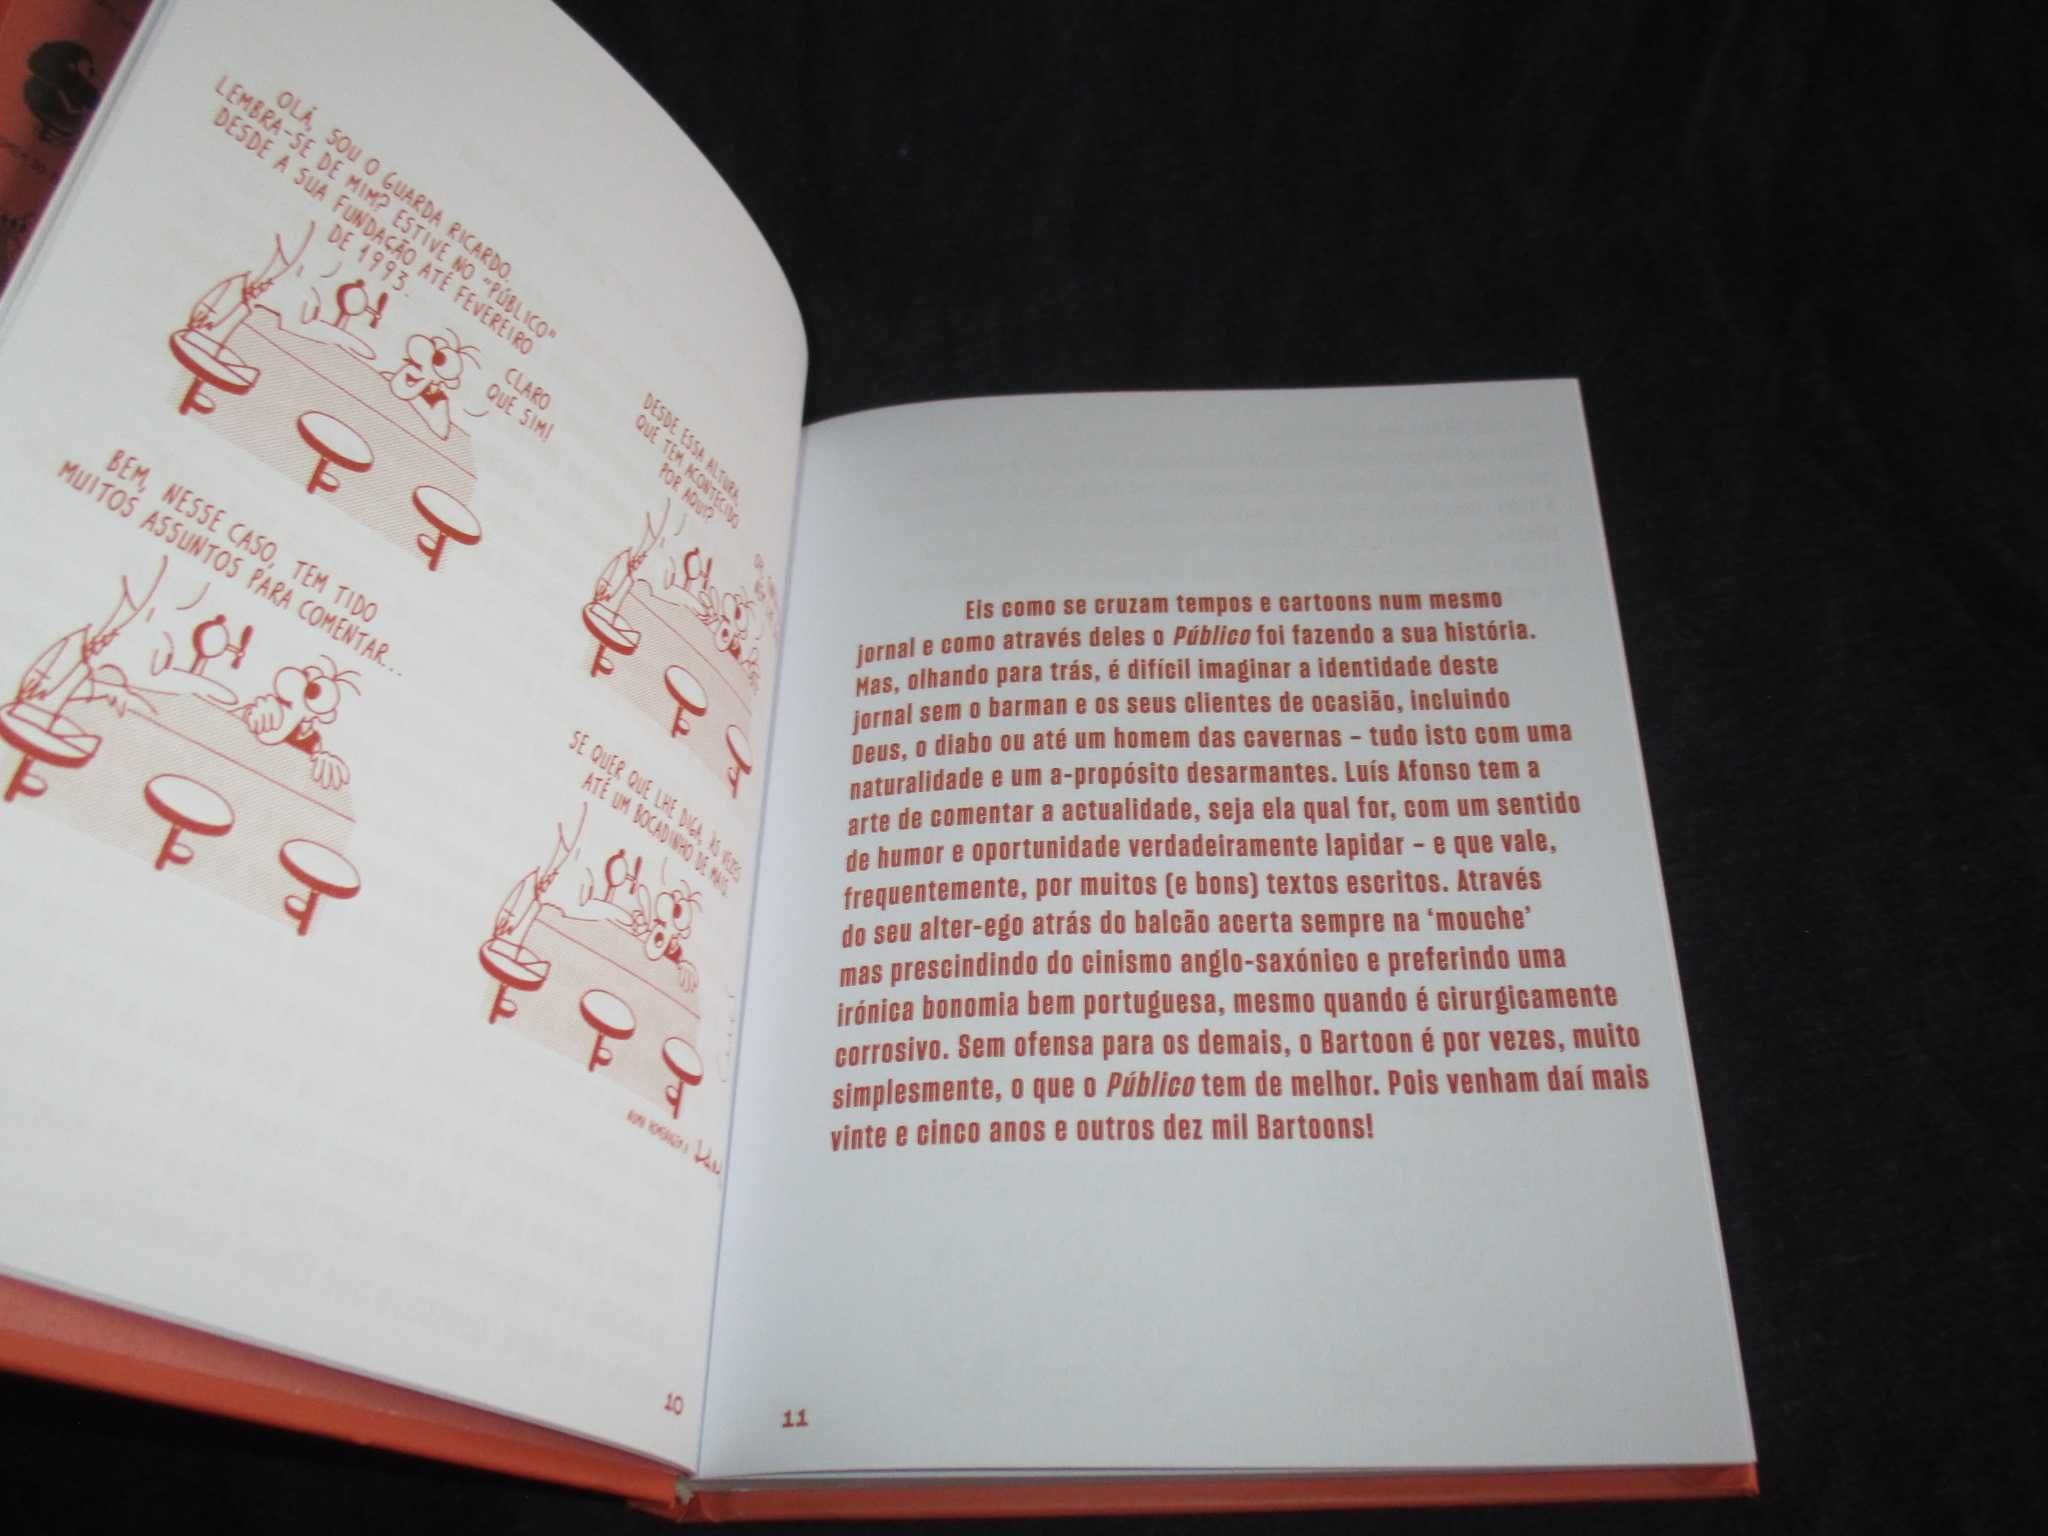 OLÁ, SOU O GUARDA RICARDO.
LEMBRA-SE DE MIM? ESTIVE NO "PÚBLICO"
DESDE A SUA FUNDAÇÃO ATÉ FEVEREIRO
DE 1993.
CLARO
QUE SIM!
DESDE ESSA ALTURA,
QUE TEM ACONTECIDO
POR AQUI?
BEM, NESSE CASO, TEM TIDO
MUITOS ASSUNTOS PARA COMENTAR...
SE QUER QUE LHE DIGA, ÀS VEZES
ATÉ UM BOCADINHO DE MAIS.
NUMA HOMENAGEM A
10
Eis como se cruzam tempos e cartoons num mesmo
jornal e como através deles o Público foi fazendo a sua história.
Mas, olhando para trás, é difícil imaginar a identidade deste
jornal sem o barman e os seus clientes de ocasião, incluindo
Deus, o diabo ou até um homem das cavernas – tudo isto com uma
naturalidade e um a-propósito desarmantes. Luís Afonso tem a
arte de comentar a actualidade, seja ela qual for, com um sentido
de humor e oportunidade verdadeiramente lapidar – e que vale,
frequentemente, por muitos (e bons) textos escritos. Através
do seu alter-ego atrás do balcão acerta sempre na ‘mouche’
mas prescindindo do cinismo anglo-saxónico e preferindo uma
irónica bonomia bem portuguesa, mesmo quando é cirurgicamente
corrosivo. Sem ofensa para os demais, o Bartoon é por vezes, muito
simplesmente, o que o Público tem de melhor. Pois venham daí mais
vinte e cinco anos e outros dez mil Bartoons!
11